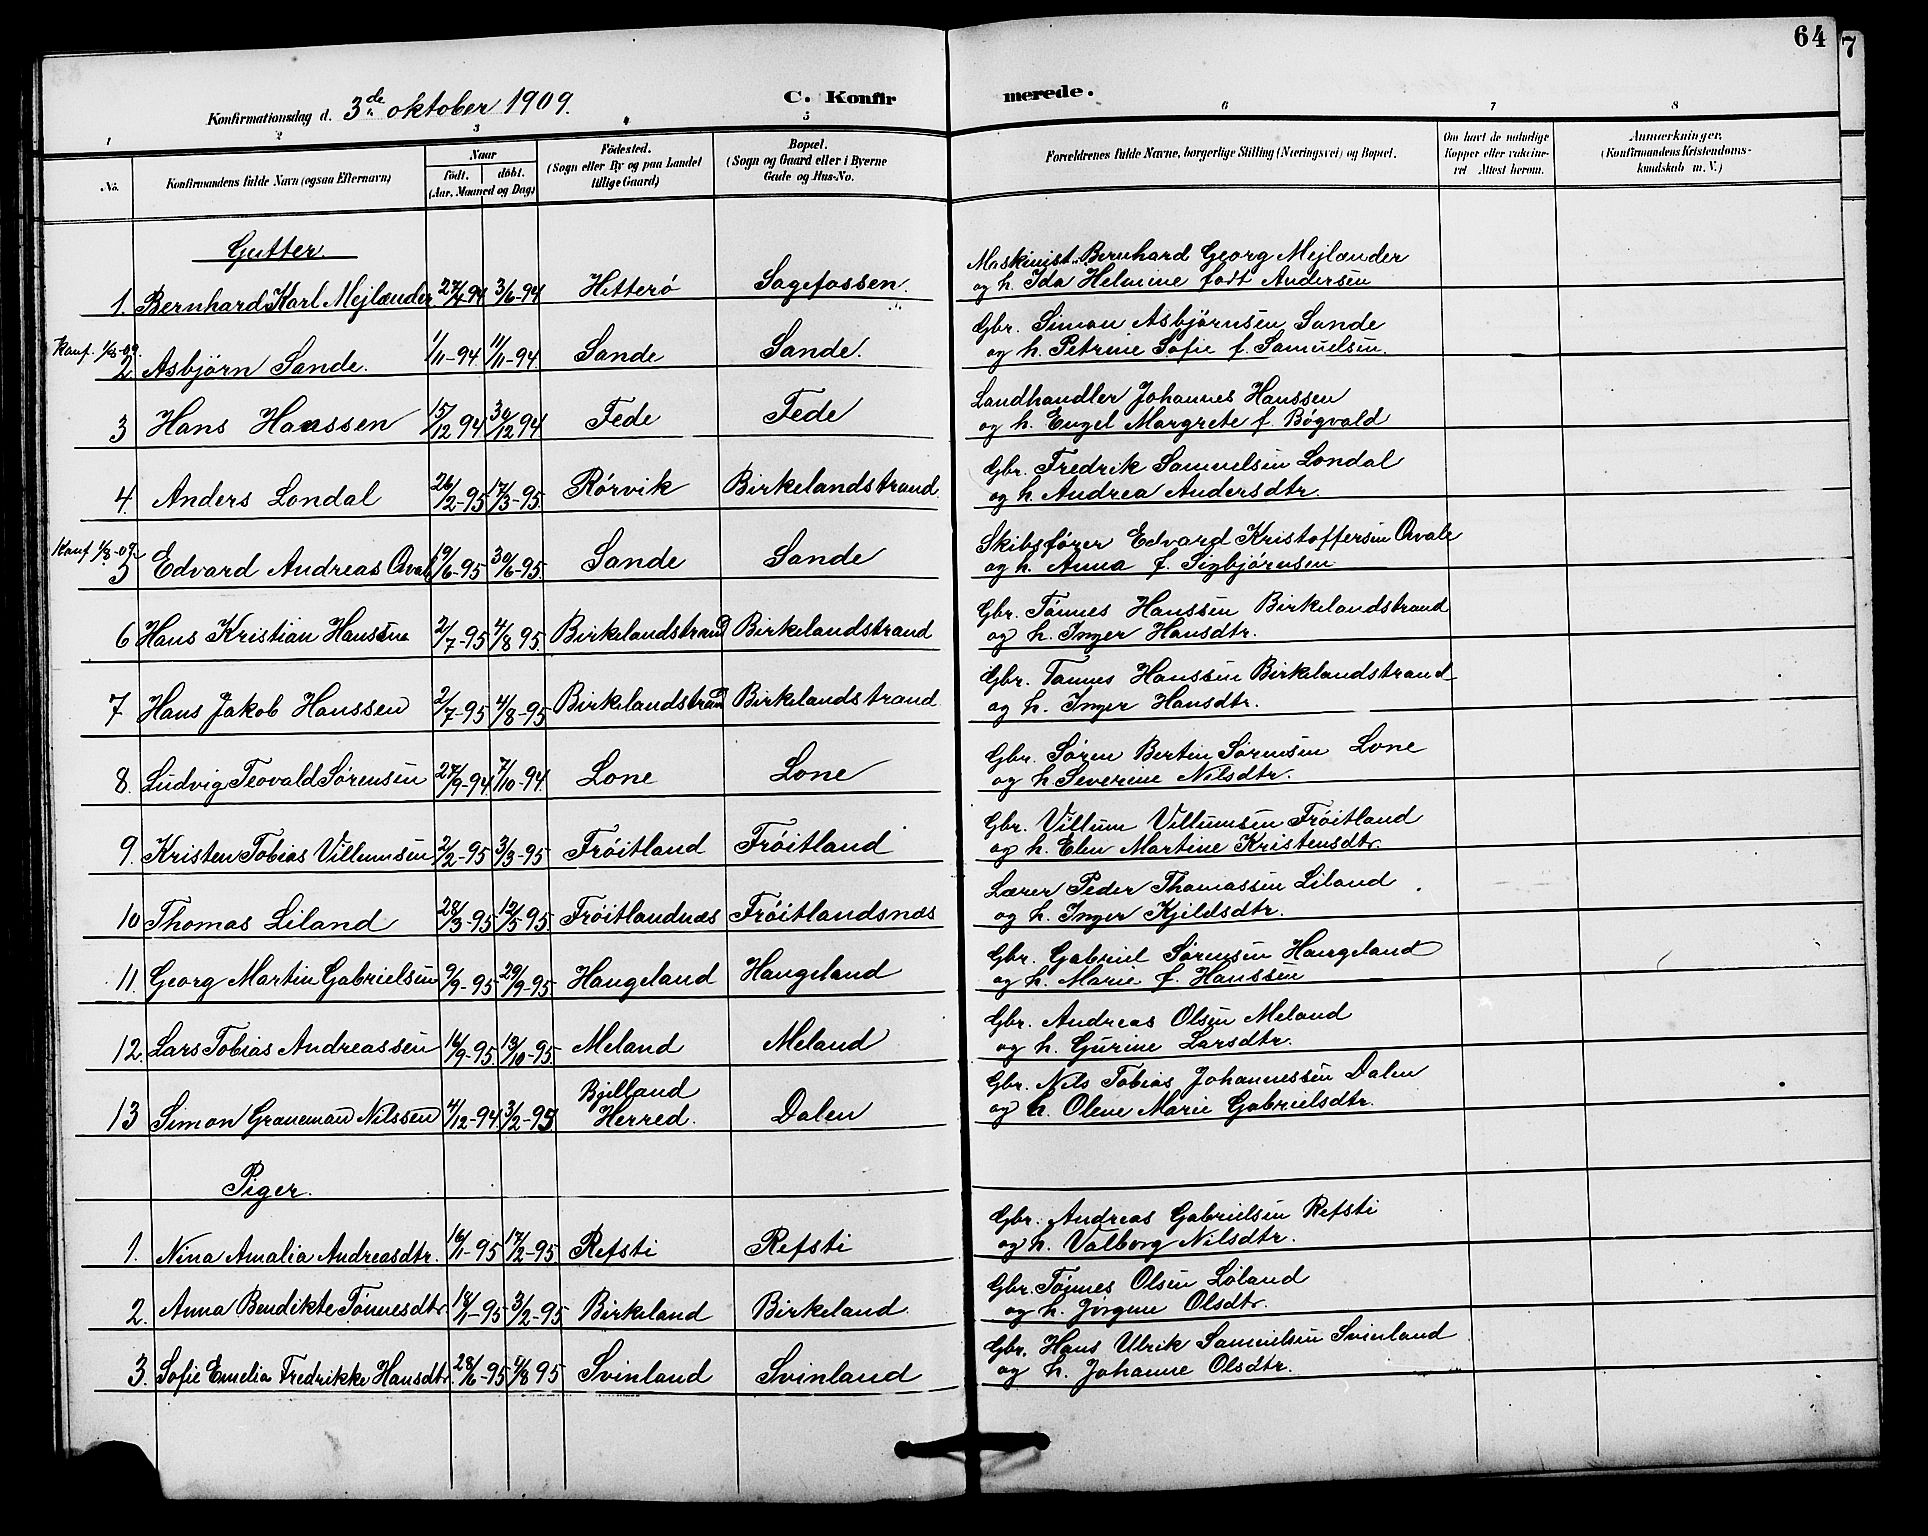 64
7
Konfirmationsdag d. 3de oktober 1909.
C. Konfir
merede.
1 2 3 4 5 6 7 8
No.
Konfirmandens fulde Navn (ogsaa Efternavn)
Naar
født. døbt.
(Aar, Maaned og Dag)
Fødested.
(Sogn eller By og paa Landet
tillige Gaard)
Bopæl.
(Sogn og Gaard eller i Byerne
Gade og Hus-No.
Forældrenes fulde Navne, borgerlige Stilling (Næringsvei) og Bopæl.
Om havt de naturlige
Kopper eller vaksine-
ret Attest herom.
Anmærkninger.
(Konfirmandens Kristendoms-
kundskab m. V.)
Gutter.
Maskinist Bernhard Georg Mejlænder
1. Bernhard Karl Mejlænder 27/4 94 3/6-94 Hitterø Sagefossen. og h. Ida Helmine født Andersen
Konf. 1/8-09. Gbr. Simon Asbjørnsen Sande
2 Asbjørn Sande. 1/11-94 11/11-94. Sande Sande. og h. Petrine Sofie f. Samuelsen.
Landhandler Johannes Hanssen
3 Hans Hanssen 15/12 94 30/12 94 Fede Fede og h. Engel Margrete f. Bøgvald
Gbr. Fredrik Samuelsen Londal
4. Anders Londal 26/2-95 17/3-95. Rørvik Birkelandstrand. og h. Andrea Andersdtr.
Konf 1/8-09. Skibsfører Edvard Kristoffersen Qvale
5 Edvard Andreas Qvale 19/6-95 30/6-95. Sande Sande og h. Anna f. Sigbjørnsen
Gbr. Tønnes Hanssen Birkelandstrand
6 Hans Kristian Hanssen 2/7-95 4/8 95. Birkelandstrand Birkelandstrand og h. Inger Hansdtr.
Gbr. Tønnes Hanssen Birkelandstrand
7 Hans Jakob Hanssen 2/7-95 4/8-95 Birkelandstrand Birkelandstrand og h. Inger Hansdtr.
Gbr. Søren Bertin Sørensen Lone
8. Ludvig Teovald Sørensen 27/9-94. 7/10-94. Lone Lone og h. Severine Nilsdtr.
Gbr. Villum Villumsen Frøitland
9. Kristen Tobias Villumsen 2/2-95 3/3-95 Frøitland Frøitland og h. Elen Martine Kristensdtr.
Lærer Peder Thomassen Liland
10 Thomas Liland 28/3-95 12/5-95. Frøitlandnæs Frøitlandsnæs og h. Inger Kjeldsdtr.
Gbr. Gabriel Sørensen Haugeland
11. Georg Martin Gabrielsen 9/9-95 29/9-95 Haugeland Haugeland og h. Marie f. Hanssen
Gbr. Andreas Olsen Meland
12. Lars Tobias Andreassen 16/9-95. 13/10-95 Meland Meland og h. Gurine Larsdtr.
Gbr. Nils Tobias Johannessen Dalen
13 Simon Graneman Nilssen 4/12-94. 3/2-95 Bjelland Herred. Dalen og h. Olene Marie Gabrielsdtr.
Piger.
Gbr. Andreas Gabrielsen Refsti
1. Nina Amalia Andreasdtr. 16/1-95 17/2-95. Refsti Refsti og h. Valborg Nilsdtr.
Gbr. Tønnes Olsen Løland
2. Anna Bendikte Tønnesdtr. 18/1-95 3/2-95 Birkeland Birkeland. og h. Jørgine Olsdtr.
Gbr. Hans Ulrik Samuelsen Svinland
3. Sofie Emelia Fredrikke Hansdtr. 28/6-95 /8 95 Svinland Svinland og h. Johanne Olsdtr.